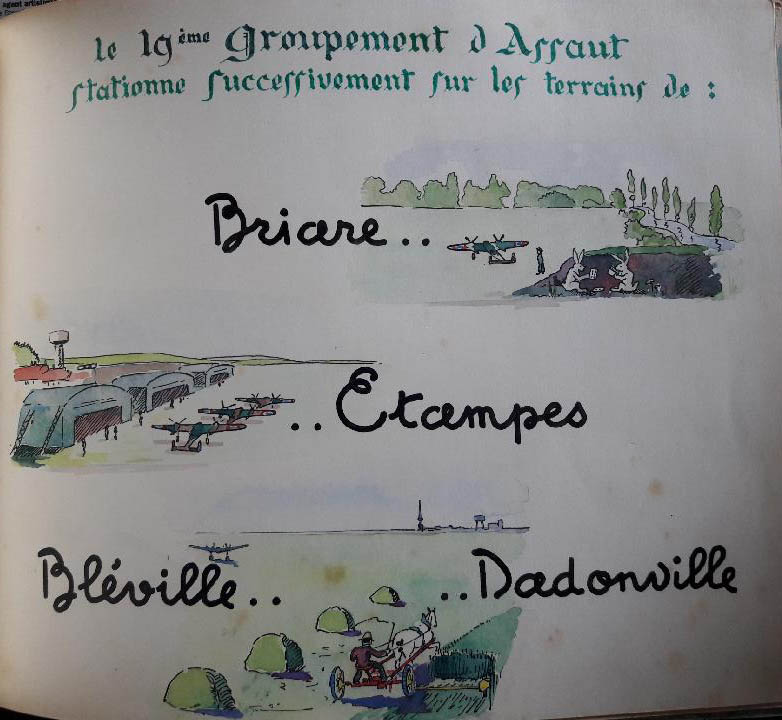 le 19ème Groupement d'Assaut
stationne successivement sur les terrains de :
Briare..
..Etampes
Bléville..
..Dadonville